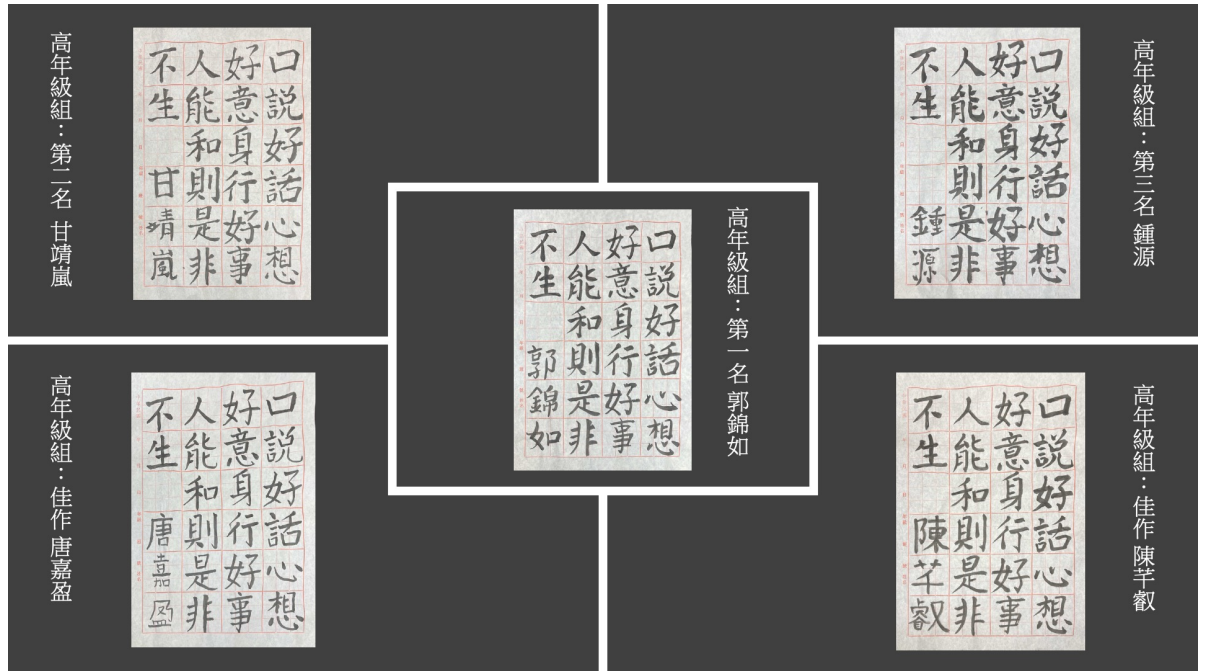 高年級組：第二名 甘靖嵐
口說好話心想
好意身行好事
人能和則是非
不生 甘靖嵐
高年級組：第三名 鍾源
口說好話心想
好意身行好事
人能和則是非
不生 鍾源
高年級組：第一名 郭錦如
口說好話心想
好意身行好事
人能和則是非
不生 郭錦如
高年級組：佳作 唐嘉盈
口說好話心想
好意身行好事
人能和則是非
不生 唐嘉盈
高年級組：佳作 陳芊叡
口說好話心想
好意身行好事
人能和則是非
不生 陳芊叡